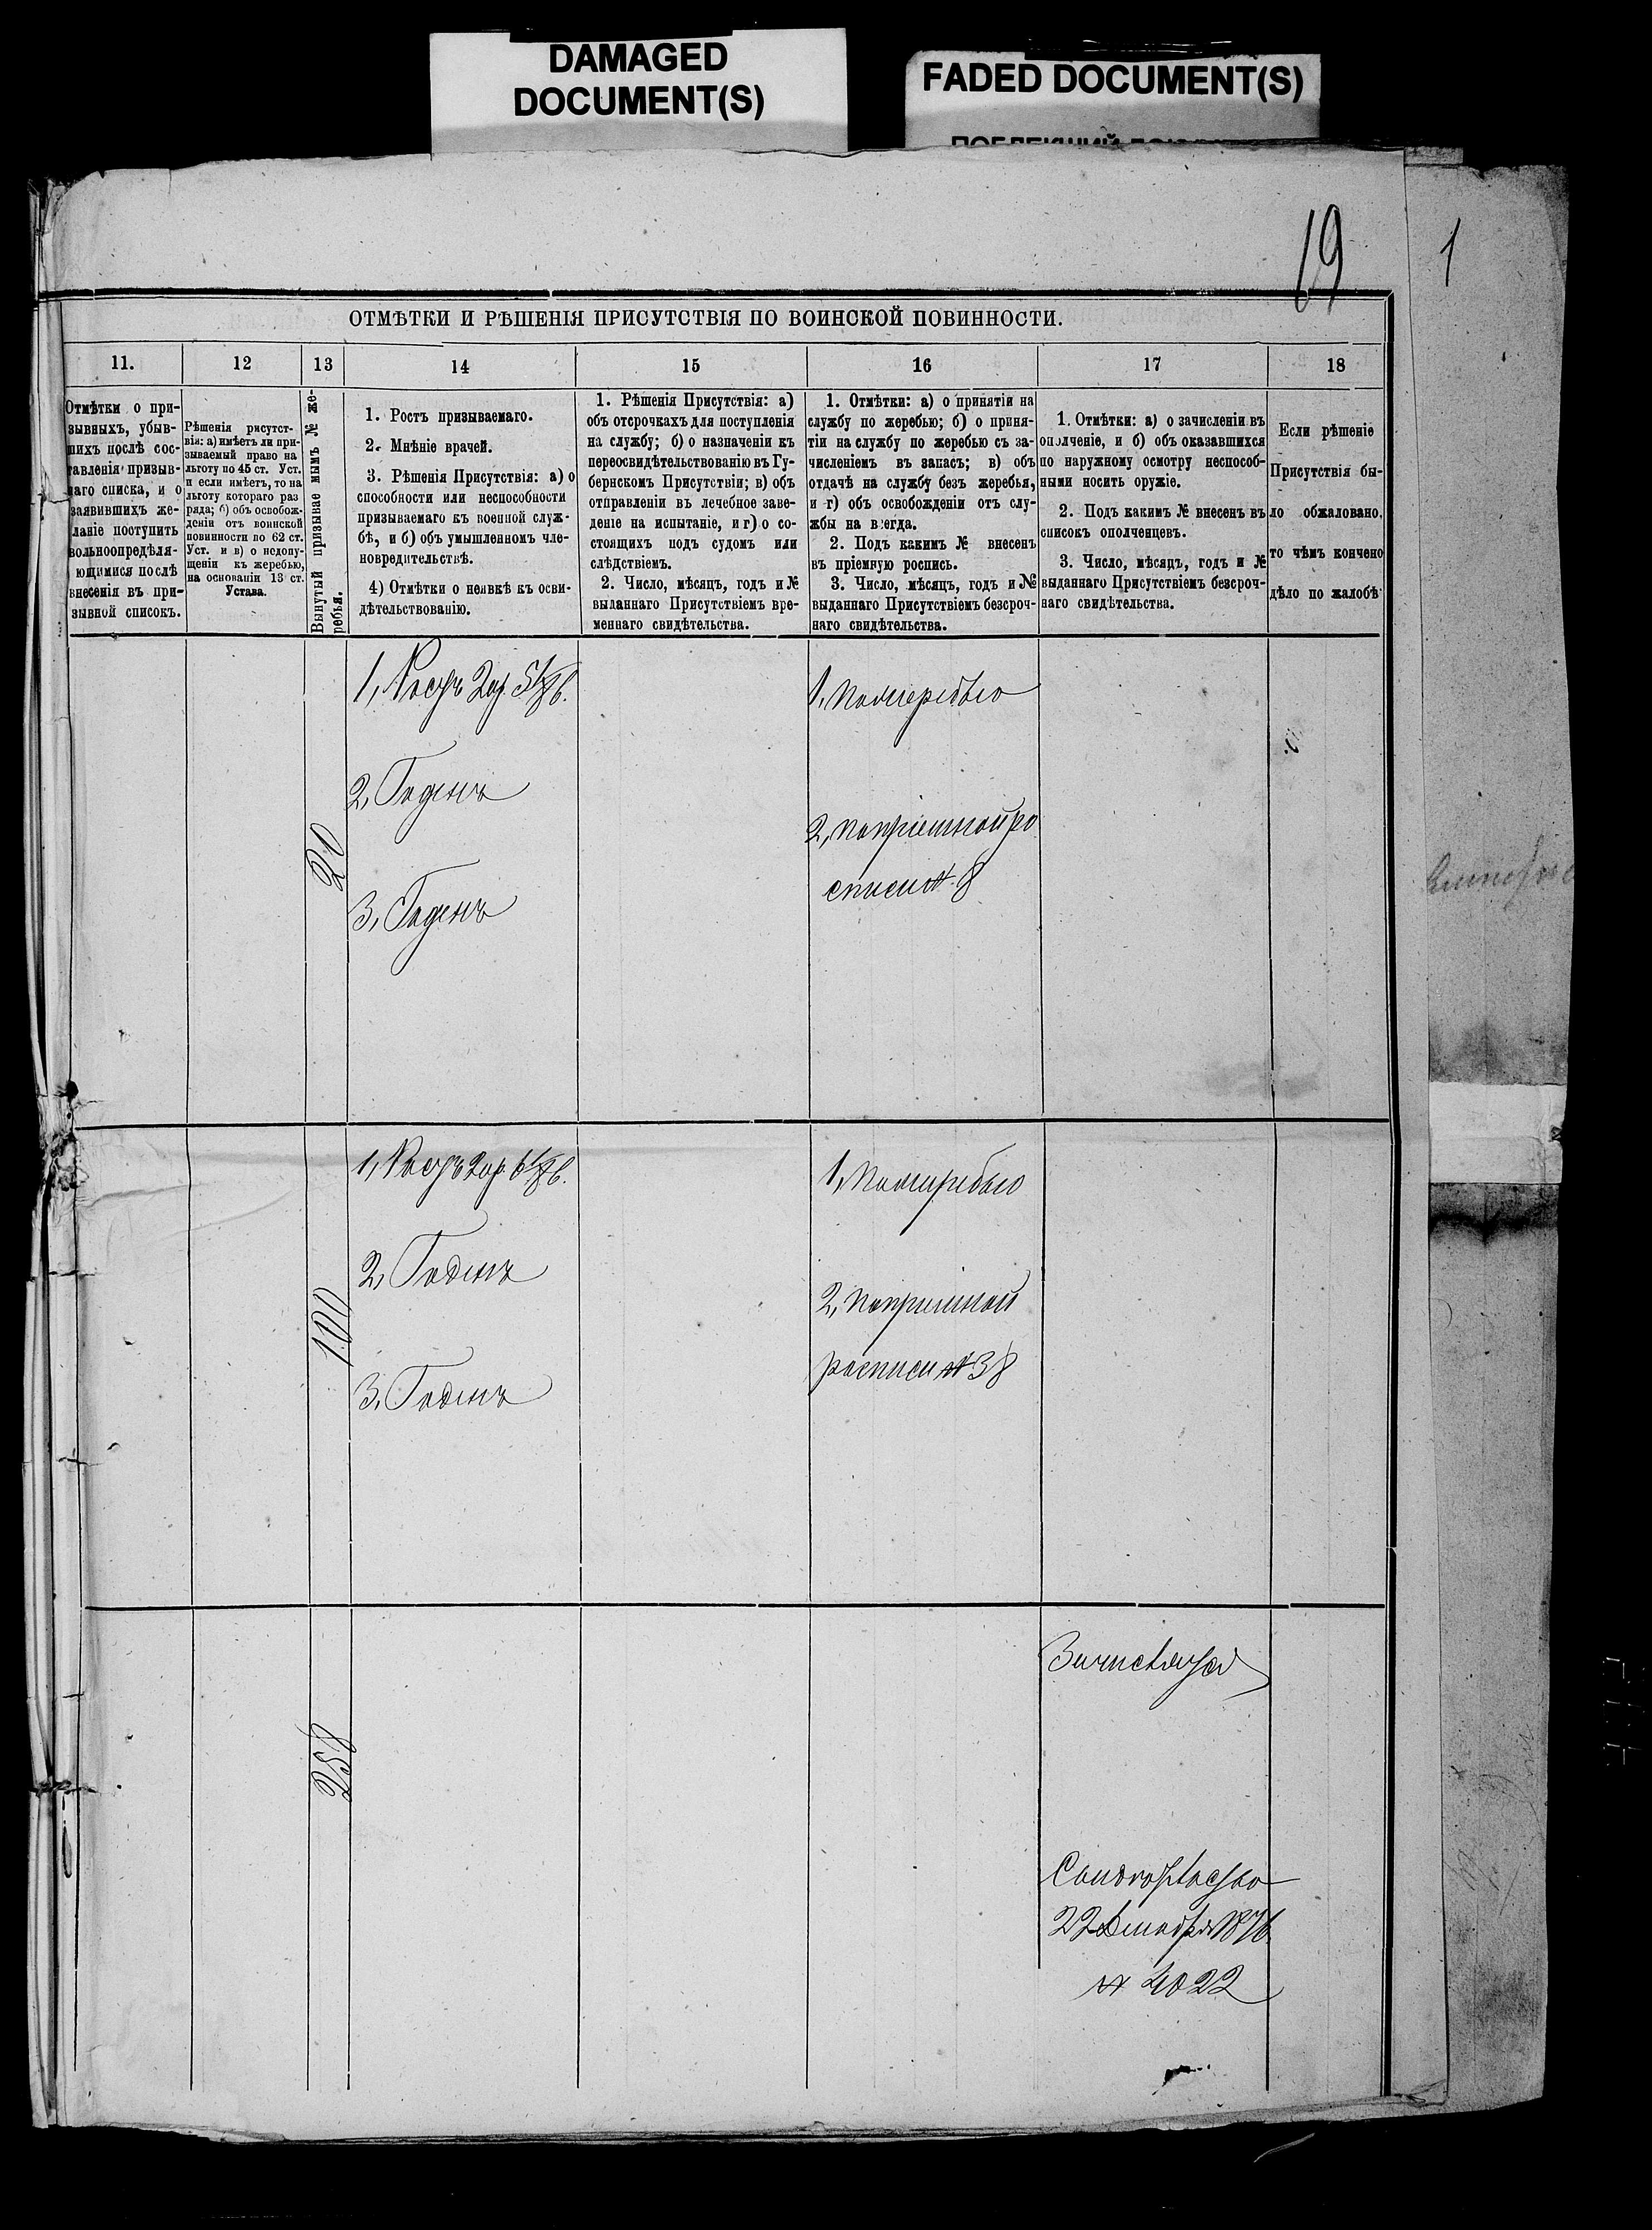 DAMAGED
DOCUMENT(S)
FADED DOCUMENT(S)
19
1
ОТМѢТКИ И РѢШЕНІЯ ПРИСУТСТВІЯ ПО ВОИНСКОЙ ПОВИННОСТИ.
11.
12
13
14
15
16
17
18
Отмѣтки о при-
зывныхъ, убыв-
шихъ послѣ сос-
тавленія призыв-
наго списка, и о
заявившихъ же-
ланіе поступить
вольноопредѣля-
ющимися послѣ
внесенія въ при-
зывной списокъ.
Рѣшенія рисутст-
вія: а) имѣетъ ли при-
зываемый право на
льготу по 45 ст. Уст.
и если имѣетъ, то на
льготу котораго раз
ряда; б) объ освобож-
деніи отъ воинской
повинности по 62 ст.
Уст. и в) о недопу-
щеніи къ жеребью,
на основаніи 13 ст.
Устава.
Вынутый призывае мымъ № же-
ребья.
1. Ростъ призываемаго.
2. Мнѣніе врачей.
3. Рѣшенія Присутствія: а) о
способности или неспособности
призываемаго къ военной служ-
бѣ, и б) объ умышленномъ чле-
новредительствѣ.
4) Отмѣтки о неявкѣ къ осви-
дѣтельствованію.
1. Рѣшенія Присутствія: а)
объ отсрочкахъ для поступленія
на службу; б) о назначеніи къ
переосвидѣтельствованію въ Гу-
бернскомъ Присутствіи; в) объ
отправленіи въ лечебное заве-
деніе на испытаніе, и г) о со-
стоящихъ подъ судомъ или
слѣдствіемъ.
2. Число, мѣсяцъ, годъ и №
выданнаго Присутствіемъ вре-
меннаго свидѣтельства.
1. Отмѣтки: а) о принятіи на
службу по жеребью; б) о приня-
тіи на службу по жеребью съ за-
численіемъ въ запасъ; в) объ
отдачѣ на службу безъ жеребья,
и г) объ освобожденіи отъ слу-
жбы на всегда.
2. Подъ какимъ № внесенъ
въ пріемную роспись.
3. Число, мѣсяцъ, годъ и №
выданнаго Присутствіемъ безсроч-
наго свидѣтельства.
1. Отмѣтки: а) о зачисленіи въ
ополченіе, и б) объ оказавшихся
по наружному осмотру неспособ-
ными носить оружіе.
2. Подъ какимъ № внесенъ въ
списокъ ополченцевъ.
3. Число, мѣсяцъ, годъ и №
выданнаго Присутствіемъ безсроч-
наго свидѣтельства.
Если рѣшеніе
Присутствія бы-
ло обжаловано,
то чѣмъ кончено
дѣло по жалобѣ
20
1, Ростъ 2 ар. 5 1/8 в.
2, Годенъ
3, Годенъ
1, По жеребью
2, по пріемной ро
списи № 8
100
1, Ростъ 2 ар. 6 1/8 в.
2, Годенъ
3, Годенъ
1, По жеребью
2, По пріемной
росписи № 38
258
Зачисляется
Свидѣтельство
22 Декабря 1876
№ 4022